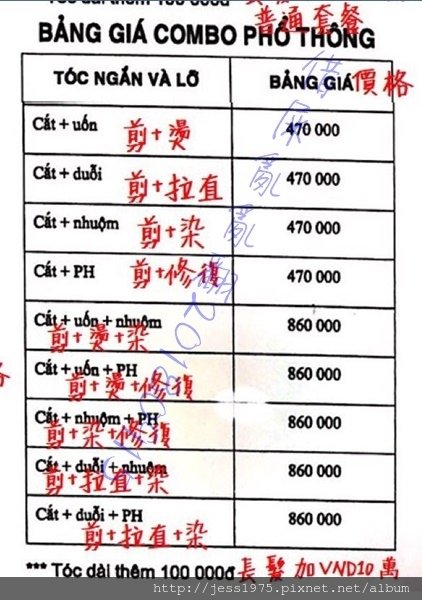 Tóc dài thêm 100 000đ
普通套餐
BẢNG GIÁ COMBO PHỔ THÔNG
TÓC NGẮN VÀ LỠ BẢNG GIÁ 價格
Cắt + uốn 剪+燙 470 000
Cắt + duỗi 剪+拉直 470 000
Cắt + nhuộm 剪+染 470 000
Cắt + PH 剪+修復 470 000
Cắt + uốn + nhuộm 860 000
剪+燙+染
Cắt + uốn + PH 860 000
剪+燙+修復
Cắt + nhuộm + PH 860 000
剪+染+修復
Cắt + duỗi + nhuộm 860 000
剪+拉直+染
Cắt + duỗi + PH 860 000
剪+拉直+染
*** Tóc dài thêm 100 000đ 長髮加VND10萬
http://jess1975.pixnet.net/album